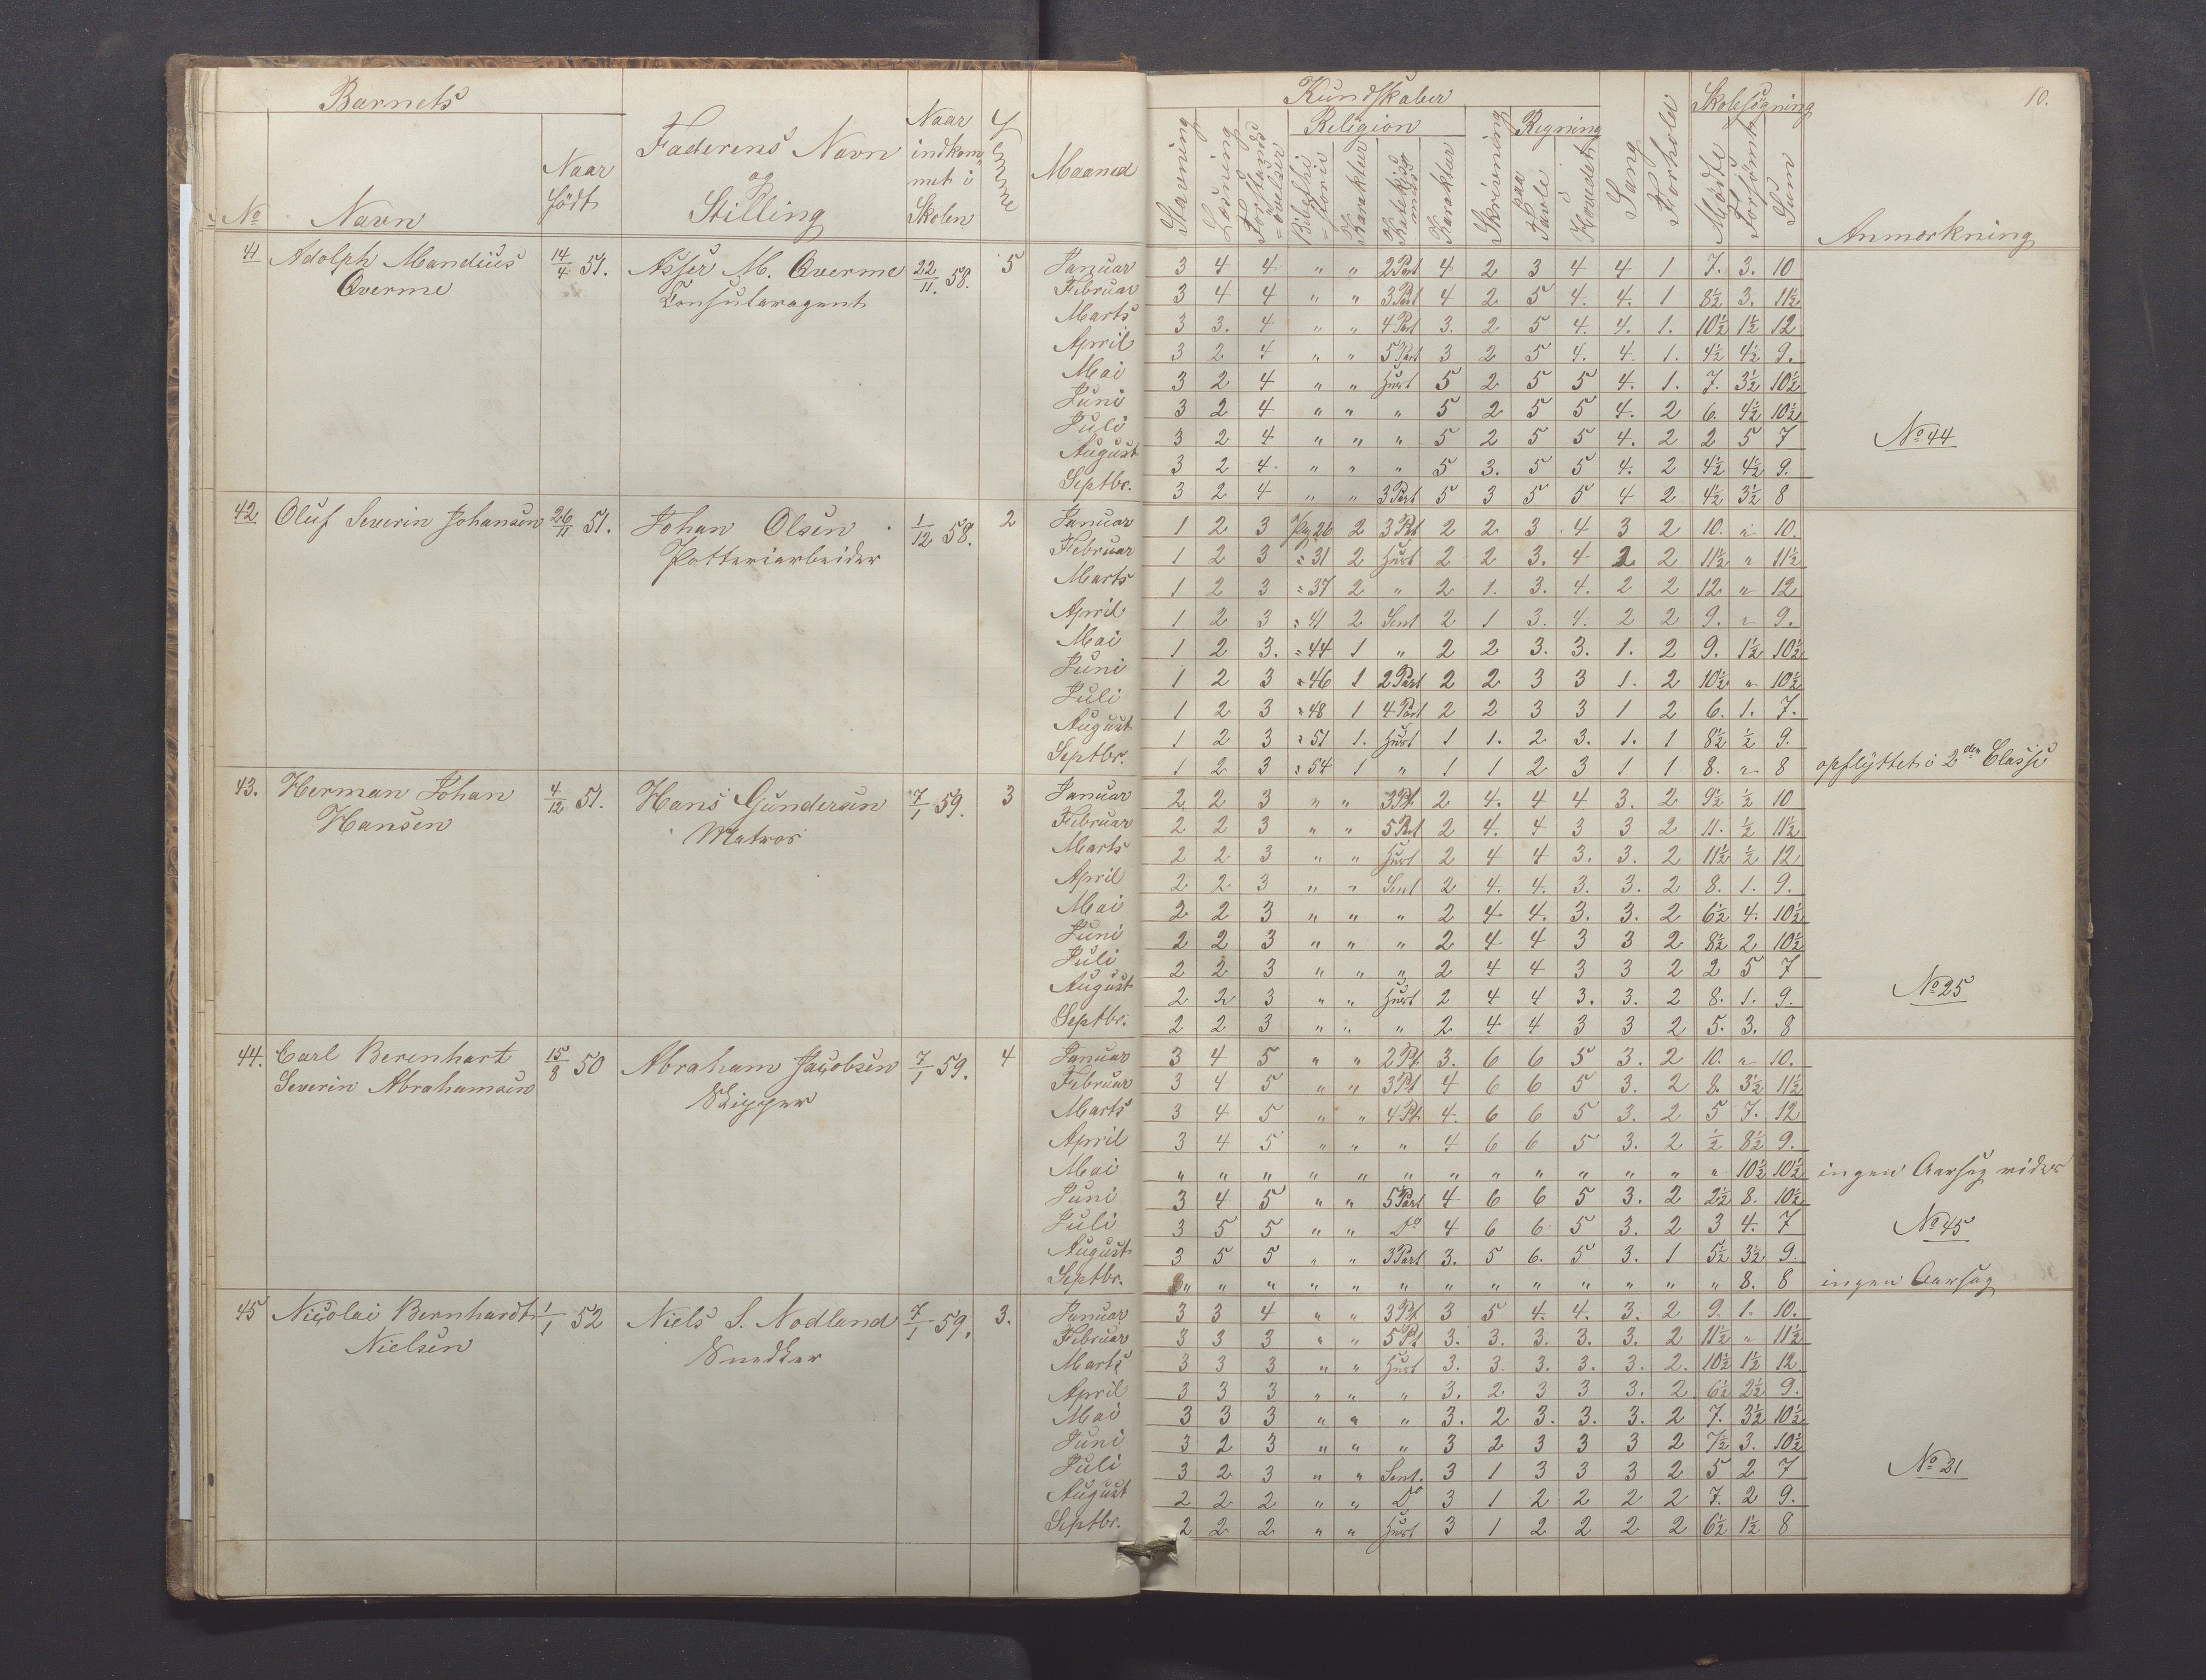 Barnets
No Navn Naar födt Faderens Navn og Stilling Naar indkommet i Skolen Evne Maaned
Kundskaber Skolesøgning 10.
Religion Regning
Stavning Læsning Forstands=øvelser Bibelhi=storie Karakter Katekismus Karakter Skrivning paa Tavle i Hovedet Sang Forhold Mødte Forsømte Sum Anmærkning
41 Adolph Mandius Qverme 14/4 51. Asser M. Qverme Consularagent 22/11. 58. 5
Januar 3 4 4 " " 2 Part 4 2 3 4 4 1 7. 3. 10
Februar 3 4 4 " " 3 Part 4 2 5 4. 4. 1 8½ 3. 11½
Marts 3 3. 4 " " 4 Part 3. 2 5 4. 4. 1. 10½ 1½ 12
April 3 2 4 " " 5 Part 3 2 5 4. 4. 1. 4½ 4½ 9.
Mai 3 2 4 " " Hust 5 2 5 5 4. 1. 7. 3½ 10½
Juni 3 2 4 " " " 5 2 5 5 4. 2 6. 4½ 10½
Juli 3 2 4 " " " 5 2 5 5 4. 2 2 5 7 No 44
August 3 2 4. " " " 5 3. 5 5 4. 2 4½ 4½ 9.
Septbr. 3 2 4 " " 3 Part 5 3 5 5 4 2 4½ 3½ 8
42 Oluf Severin Johansen 26/11 51. Johan Olsen Potteriarbeider 1/12 58. 2
Januar 1 2 3 Pag 26 2 3 Part 2 2 3 4 3 2 10. " 10.
Februar 1 2 3 = 31 2 Hust 2 2 3. 4 2 2 11½ " 11½
Marts 1 2 3 = 37 2 " 2 1. 3. 4. 2 2 12 " 12
April 1 2 3 = 41 2 Sent 2 1 3. 4. 2 2 9. " 9.
Mai 1 2 3. = 44 1 " 2 2 3. 3. 1. 2 9. 1½ 10½
Juni 1 2 3 = 46 1 2 Part 2 2 3 3 1. 2 10½ " 10½
Juli 1 2 3 = 48 1 4 Part 2 2 3 3 1 2 6. 1. 7.
August 1 2 3 = 51 1. Hust 1 1. 2 3. 1. 1 8½ ½ 9.
Septbr. 1 2 3 = 54 1 " 1 1 2 3 1 1 8. " 8 opflyttet i 2den Classe
43. Herman Johan Hansen 4/12 51. Hans Gundersen Matros 7/1 59. 3
Januar 2 2 3 " " 3 Pt. 2 4. 4 4 3. 2 9½ ½ 10
Februar 2 2 3 " " 5 Part 2 4. 4 3 3 2 11. ½ 11½
Marts 2 2 3 " " Hust 2 4 4 3. 3. 2 11½ ½ 12
April 2 2 3 " " Sent 2 4. 4. 3. 3. 2 8. 1. 9.
Mai 2 2 3 " " " 2 4 4. 3. 3. 2 6½ 4. 10½
Juni 2 2 3 " " " 2 4 4 3 3 2 8½ 2 10½
Juli 2 2 3 " " " 2 4 4 3 3 2 2 5 7 No 25
August 2 2 3 " " Hust 2 4 4 3. 3. 2 8. 1. 9.
Septbr. 2 2 3 " " " 2 4 4 3 3 2 5. 3. 8
44. Carl Berenhart Severin Abrahamsen 15/8 50 Abraham Jacobsen Skipper 7/1 59. 4
Januar 3 4 5 " " 2 Pt. 3. 6 6 5 3. 2 10. " 10.
Februar 3 4 5 " " 3 Pt 4 6 6 5 3. 2 8. 3½ 11½
Marts 3 4 5 " " 4 Pt. 4. 6 6 5 3. 2 5 7. 12
April 3 4 5 " " " 4 6 6 5 3. 2 ½ 8½ 9.
Mai " " " " " " " " " " " " " 10½ 10½ ingen Aarsag
Juni 3 4 5 " " 5 Part 4 6 6 5 3. 2 2½ 8. 10½
Juli 3 5 5 " " Do 4 6 6 5 3. 2 3 4. 7 No 45
August 3 5 5 " " 3 Part 3. 5 6. 5 3. 1 5½ 3½ 9.
Septbr. " " " " " " " " " " " " " 8. 8 ingen Aarsag
45 Nicolai Bernhardt Nielsen 1/1 52 Niels S. Nodland Snedker 7/1 59. 3.
Januar 3 3 4 " " 3 Pt 3 5 4. 4. 3. 2 9. 1. 10.
Februar 3 3 3 " " 5 Pt 3. 3. 3. 3. 3. 2 11½ " 11½
Marts 3 3 3 " " Hust 3. 3 3. 3. 3. 2. 10½ 1½ 12
April 3 3 3 " " " 3. 2 3 3 3. 2 6½ 2½ 9.
Mai 3 3 3 " " " 3. 2 3. 3. 3. 2 7. 3½ 10½
Juni 3 2 3 " " " 3 2 3 3 3 2 7½ 3. 10½
Juli 3 2 3 " " Sent. 3 1 3 3 3 2 5 2 7 No 21
August 2 2 2 " " Do 3 1 2 2 2 2 7. 2 9.
Septbr. 2 2 2 " " Hust 3 1 2 2 2 2 6½ 1½ 8